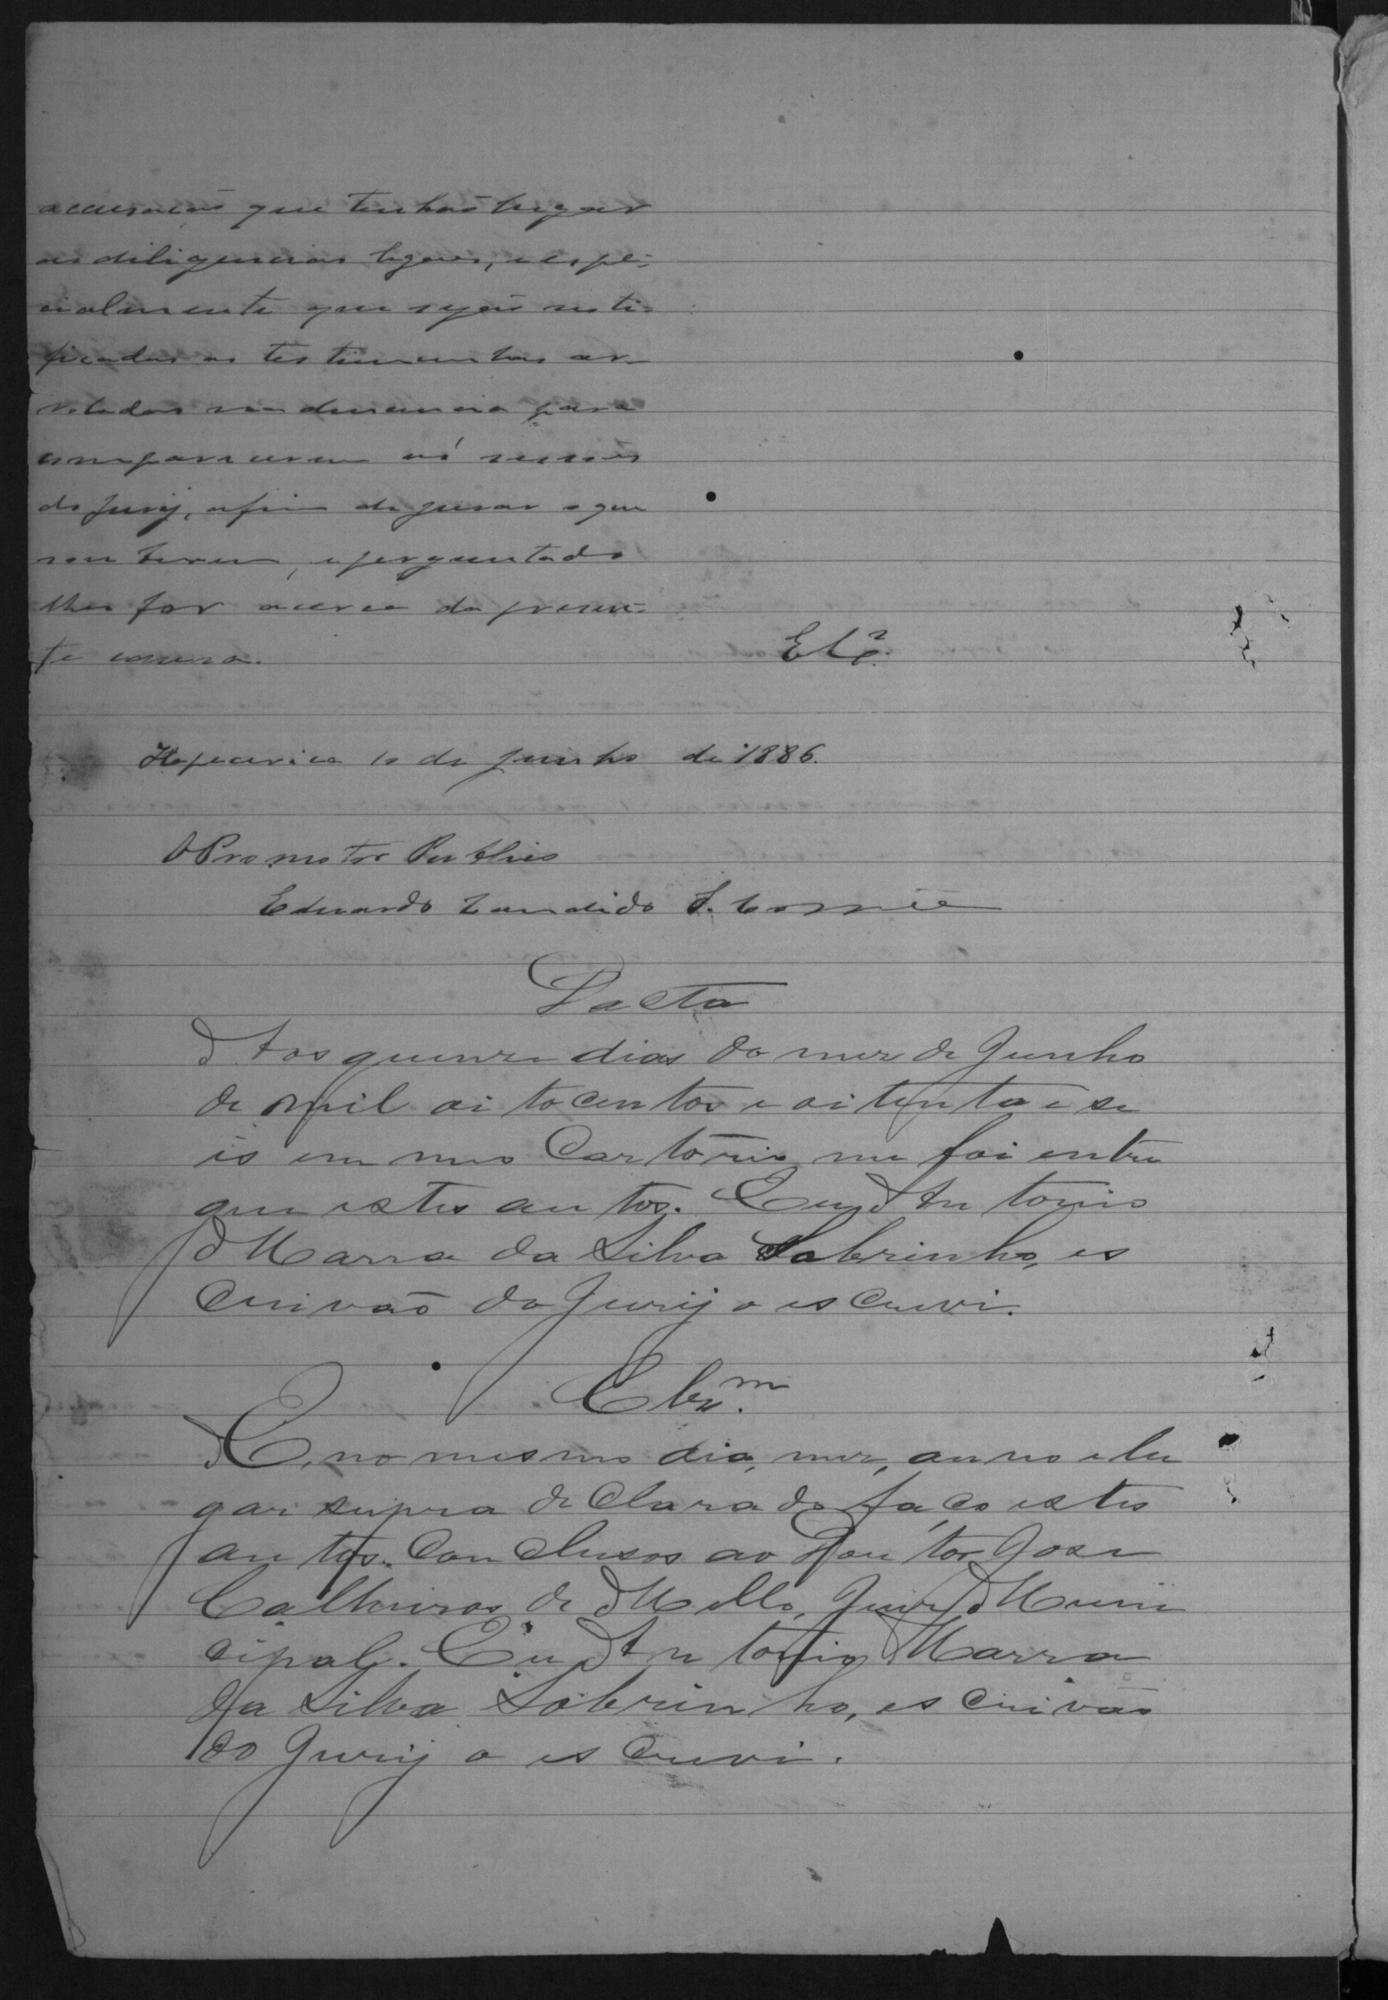 accusação que tenhão lugar
as diligencias legaes, e espe-
cialmente que sejão noti-
ficadas as testimunhas ar-
roladas na denuncia para
comparecerem ás sessões
do Jury, afim de jurar o que
souberem, e perguntado
lhes for acerca da presen-
te causa.
E. Cª.
Itapecerica 10 de Junho de 1886.
O Promotor Publico
Eduardo Candido S. Corrêa
Dacta
Aos quinze dias do mez de Junho
de mil oitocentos e oitenta e se
is em meo Cartorio me foi entre
gue estes autos. Eu Antonio
Marra da Silva Sobrinho, es
crivão do Jury o escrevi.
Clzm.
E, no mesmo dia, mez, anno e lu
gar supra declarado faço estes
autos conclusos ao Doutor Jose
Calheiros de Mello, Juiz Muni
cipal. Eu Antonio Marra
da Silva Sobrinho, escrivão
do Jury o escrevi.